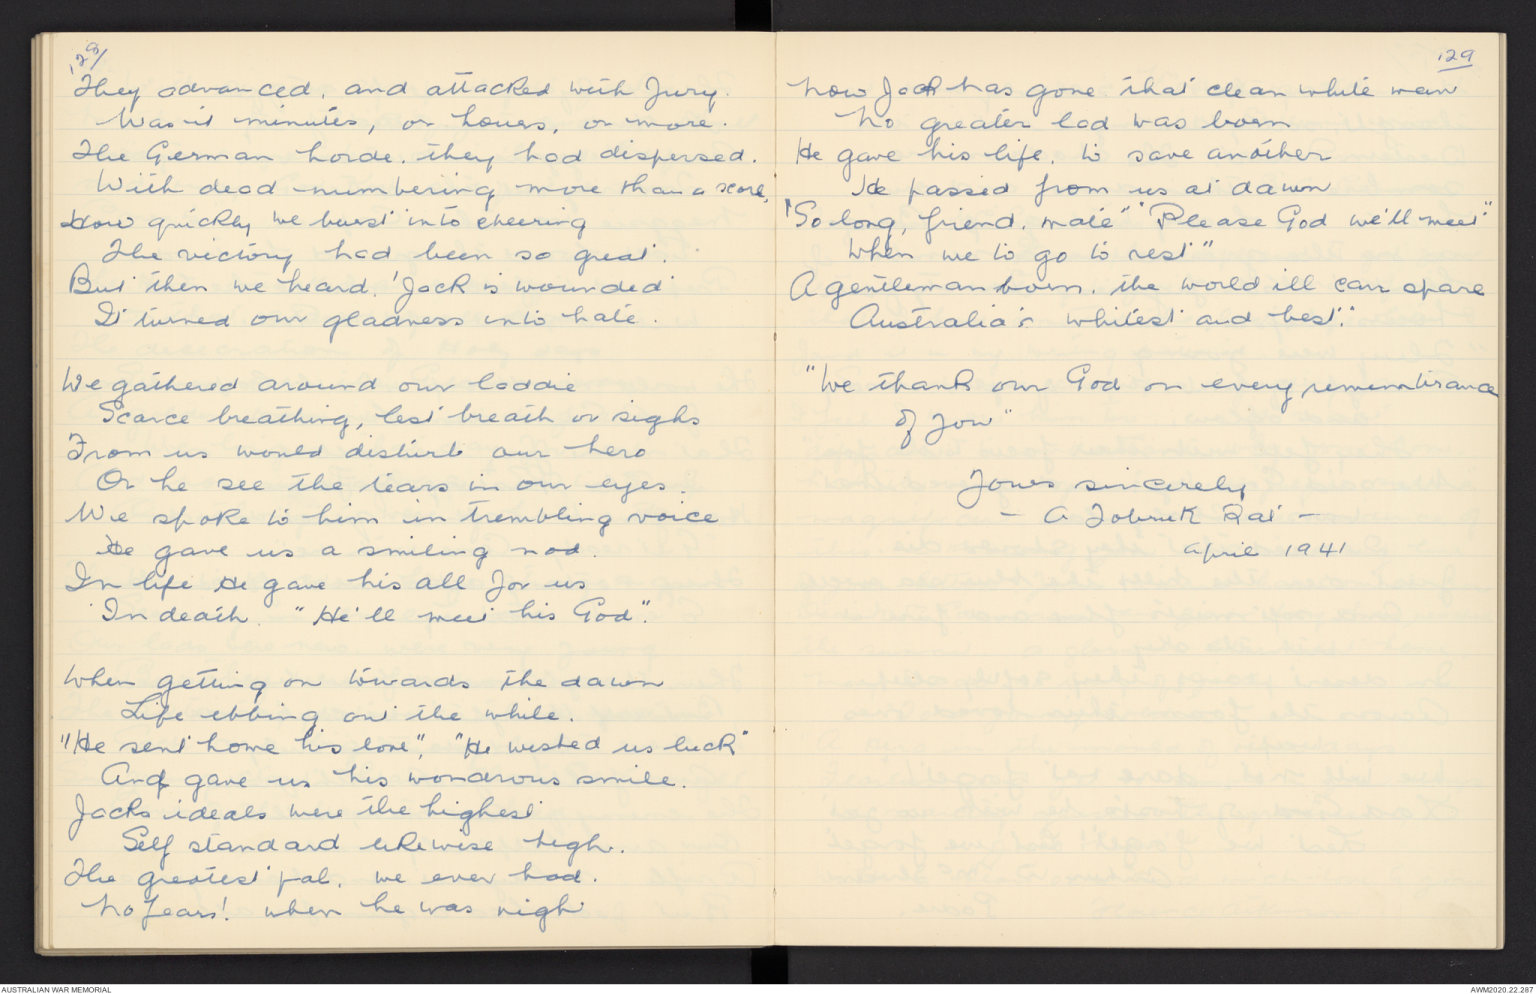 129/
They advanced. and attacked with fury.
Was it minutes, or hours, or more.
The German horde. they had dispersed.
With dead numbering more than a score,
How quickly we burst into cheering
The victory had been so great.
But then we heard. 'Jack is wounded
It turned our gladness into hate.
We gathered around our laddie
Scarce breathing, lest breath or sighs
From us would disturb our hero
Or he see the tears in our eyes.
We spoke to him in trembling voice
He gave us a smiling nod.
In life He gave his all for us
In death. "He'll meet his God".
When getting on towards the dawn
Life ebbing out the while.
"He sent home his love", "He wished us luck"
And gave us his wonderous smile.
Jacks ideals were the highest
Self standard likewise high.
The greatest pal. we ever had.
No fears! when he was nigh
129
Now Jack has gone. that clean white man
No greater lad was born
He gave his life. to save another
He passed from us at dawn
"So long, friend. mate" "Please God we'll meet"
When we to go to rest"
A gentleman born. the world ill can spare
Australia's whitest and best."
"We thank our God on every rememberance
of you"
Yours sincerely
- A Tobruk Rat -
April 1941
AUSTRALIAN WAR MEMORIAL
AWM2020.22.287